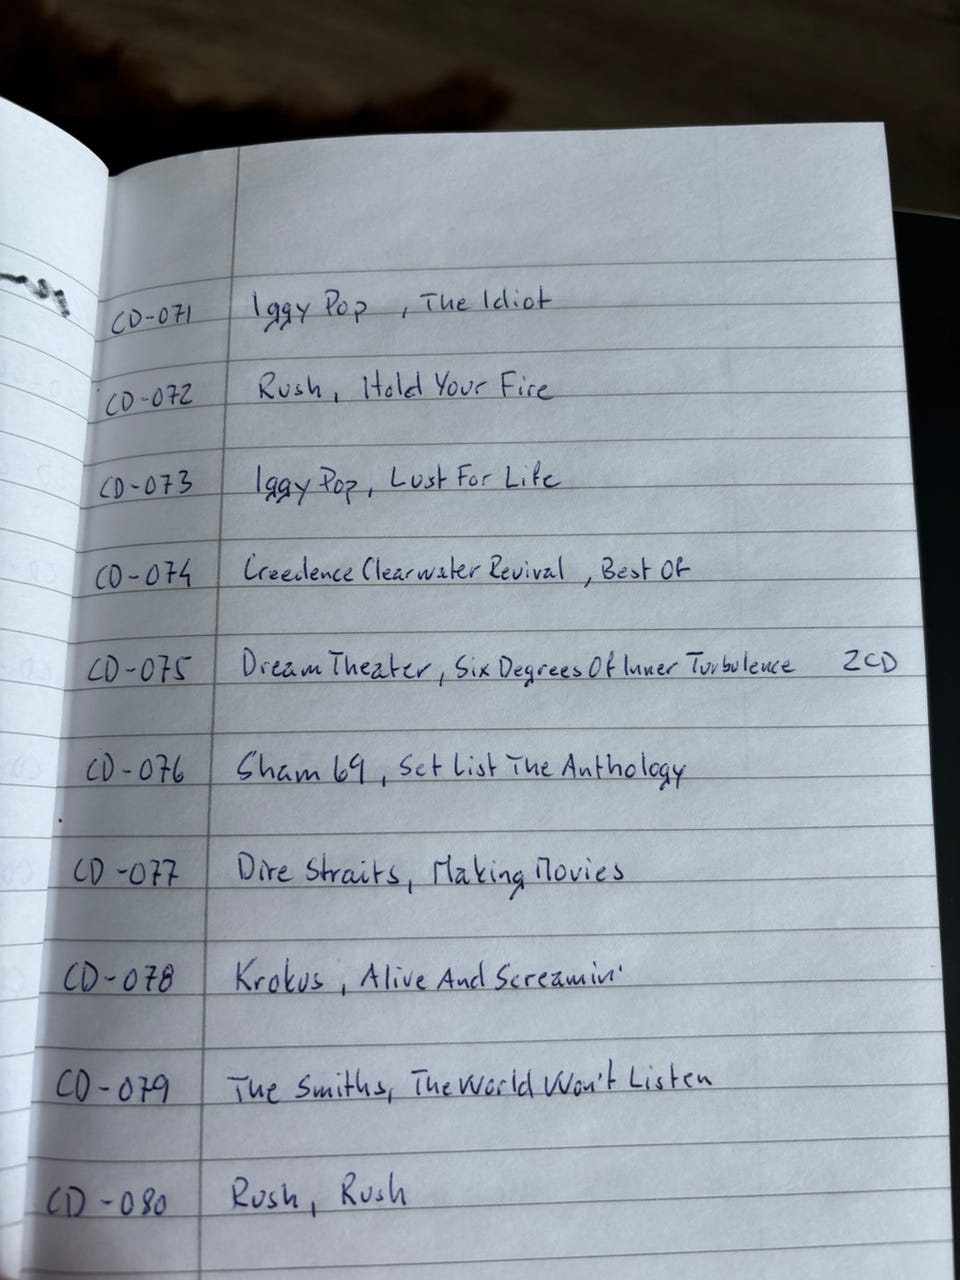 CD-071 Iggy Pop, The Idiot
CD-072 Rush, Hold Your Fire
CD-073 Iggy Pop, Lust For Life
CD-074 Creedence Clearwater Revival, Best Of
CD-075 Dream Theater, Six Degrees Of Inner Turbulence 2CD
CD-076 Sham 69, Set List The Anthology
CD-077 Dire Straits, Making Movies
CD-078 Krokus, Alive And Screamin'
CD-079 The Smiths, The World Won't Listen
CD-080 Rush, Rush